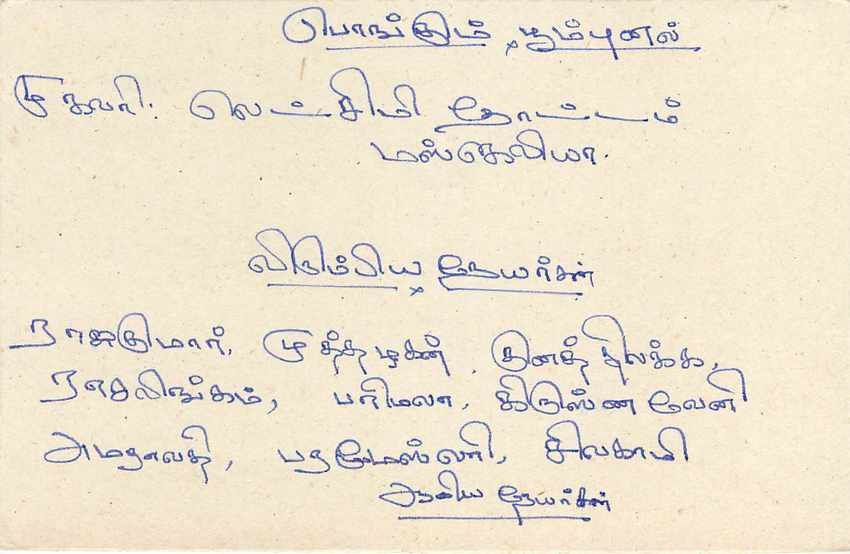 பொங்கும் பூம்புனல்
முகவரி: லெட்சிமி தோட்டம்
மஸ்கெலியா.
விரும்பிய நேயர்கள்
ராஜகுமார், முத்தழகன், குணத்திலக்க,
ராசலிங்கம், பரிமலா, கிருஸ்ணவேனி
அமராவதி, பரமேஸ்வரி, சிவகாமி
ஆகிய நேயர்கள்